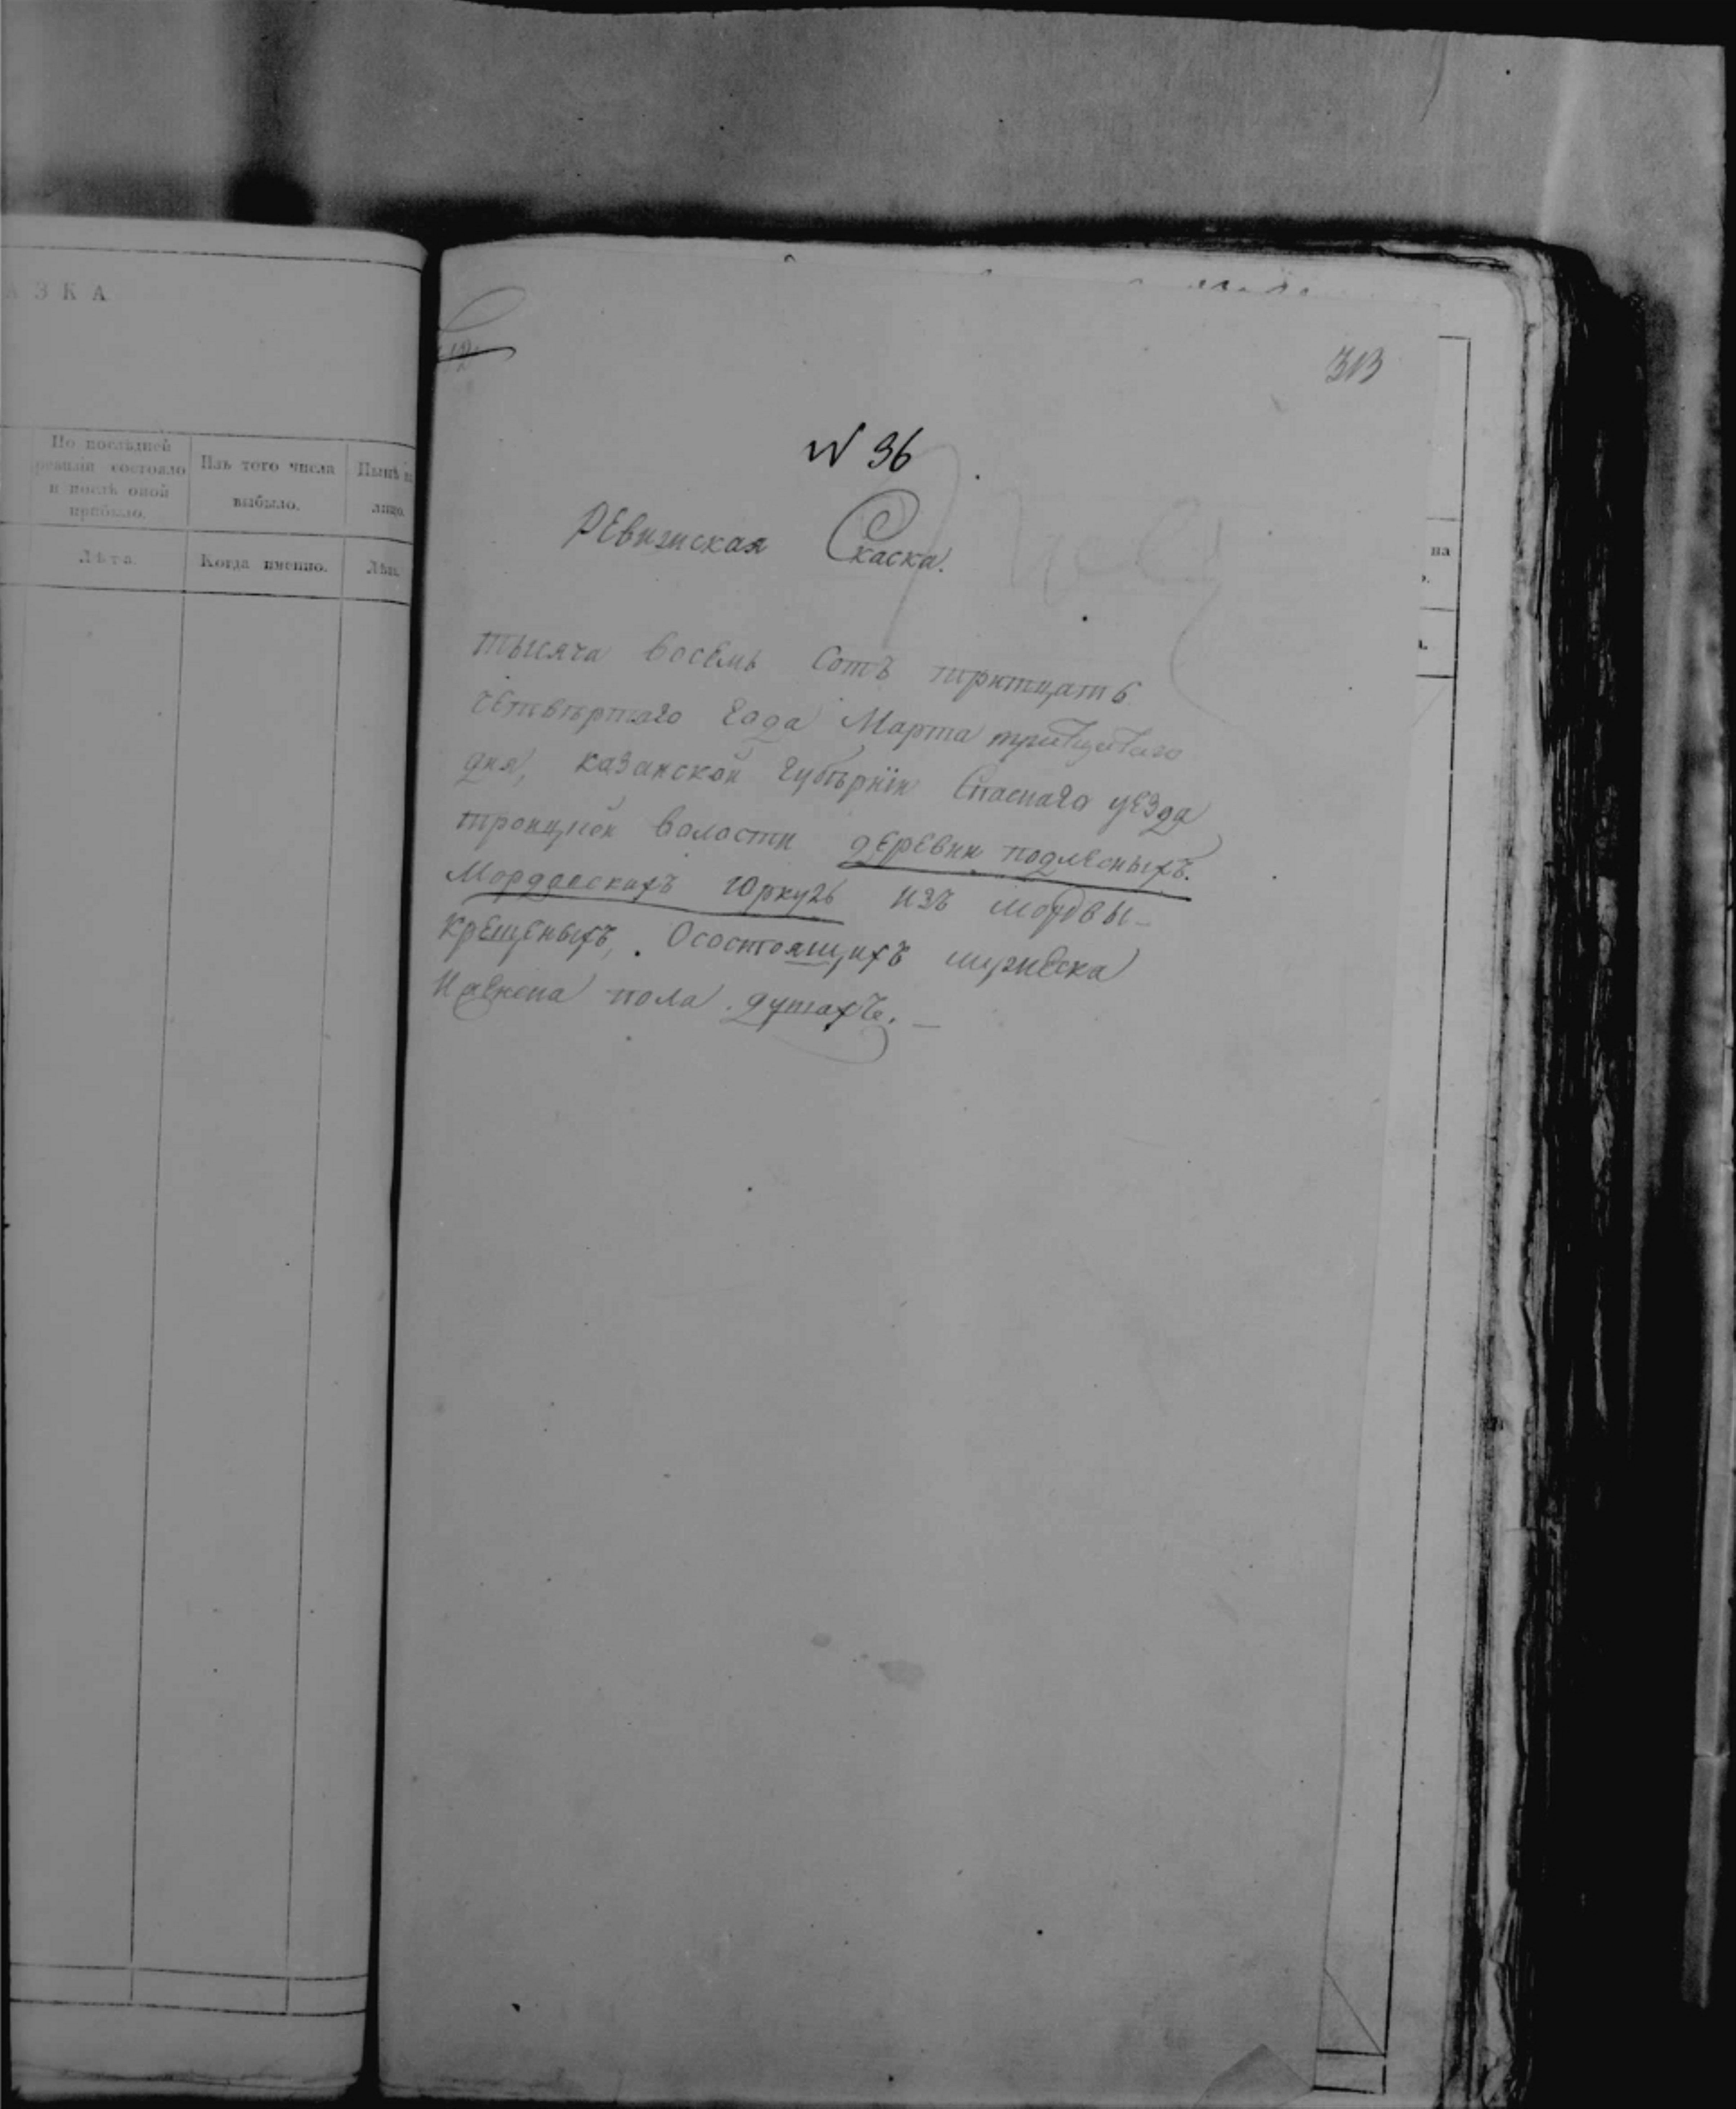 АЗКА
По послѣдней
ревизіи состояло
и послѣ оной
прибыло.
Изъ того числа
выбыло.
Нынѣ на
лицо.
Лѣта.
Когда именно.
Лѣта.
12
313
N 36
Ревизская Скаска.
тысяча восемь Сотъ тритцать
четвертаго Года Марта тритцатаго
дня, казанской Губернїи Спаскаго уезда
троицкой волости деревни подлесныхъ.
Мордовскихъ Юркуль изъ мордвы-
крещеныхъ, Осостоящихъ мужеска
И женска пола душахъ. —
на